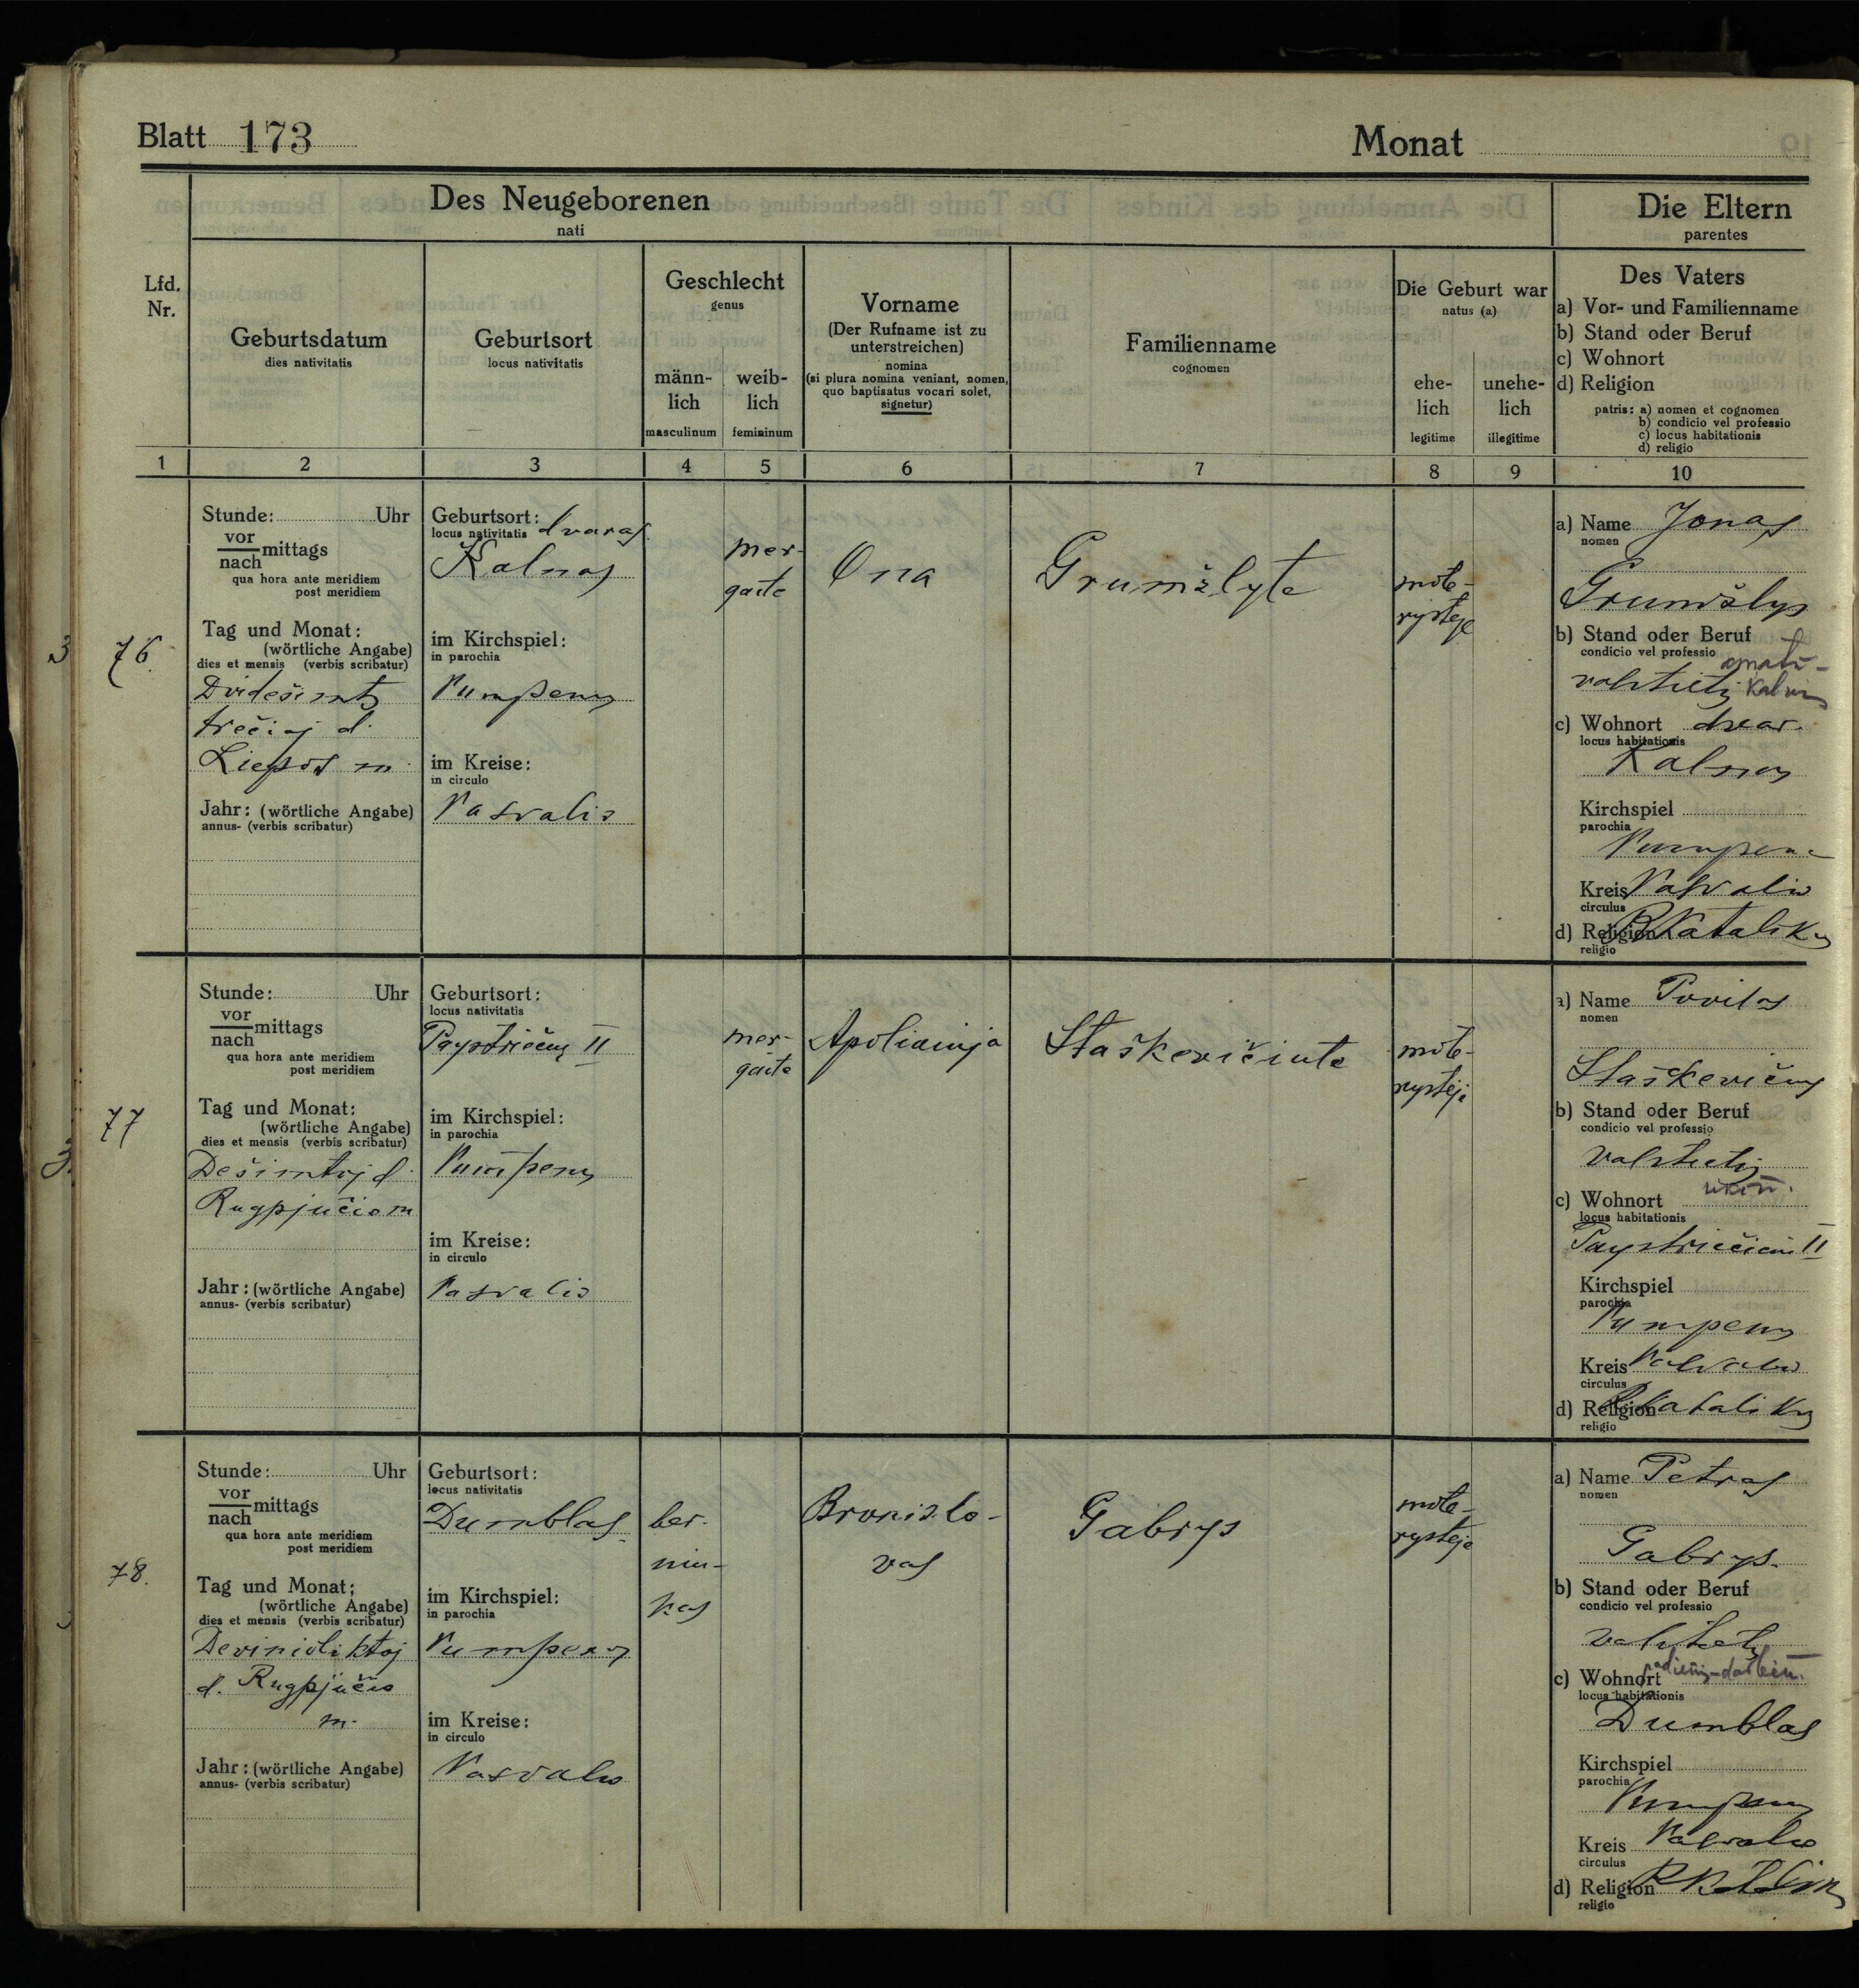 Blatt 173
Monat
Des Neugeborenen
nati
Die Eltern
parentes
Lfd.
Nr.
Geburtsdatum
dies nativitatis
Geburtsort
locus nativitatis
Geschlecht
genus
männ-
lich
masculinum
weib-
lich
femininum
Vorname
(Der Rufname ist zu
unterstreichen)
nomina
(si plura nomina veniant, nomen,
quo baptisatus vocari solet,
signetur)
Familienname
cognomen
Die Geburt war
natus (a)
ehe-
lich
legitime
unehe-
lich
illegitime
Des Vaters
a) Vor- und Familienname
b) Stand oder Beruf
c) Wohnort
d) Religion
patris: a) nomen et cognomen
b) condicio vel professio
c) locus habitationis
d) religio
1 2 3 4 5 6 7 8 9 10
3 76.
Stunde: Uhr
vor
nach mittags
qua hora ante meridiem
post meridiem
Tag und Monat:
(wörtliche Angabe)
dies et mensis (verbis scribatur)
Dvidešimts
trečiaj d.
Liepos m.
Jahr: (wörtliche Angabe)
annus- (verbis scribatur)
Geburtsort:
locus nativitatis dvaras
Kalnas
im Kirchspiel:
in parochia
Pumpenų
im Kreise:
in circulo
Pasvalio
mer-
gaitė
Ona
Grumšlyte
mote-
rystėje
a) Name Jonas
nomen
Grumšlys
b) Stand oder Beruf
condicio vel professio
amati-
valstietis kalvis
c) Wohnort dvar.
locus habitationis
Kalnas
Kirchspiel
parochia
Pumpenų
Kreis Pasvalio
circulus
d) Religion R Katalikų
religio
77
3.
Stunde: Uhr
vor
nach mittags
qua hora ante meridiem
post meridiem
Tag und Monat:
(wörtliche Angabe)
dies et mensis (verbis scribatur)
Dešimtoj d.
Rugpjučio m
Jahr: (wörtliche Angabe)
annus- (verbis scribatur)
Geburtsort:
locus nativitatis
Paystriečių II
im Kirchspiel:
in parochia
Pumpenų
im Kreise:
in circulo
Pasvalio
mer-
gaitė
Apolianija
Staškevičiute
mote-
rystėje
a) Name Povilas
nomen
Staškevičius
b) Stand oder Beruf
condicio vel professio
valstietis
ukin.
c) Wohnort
locus habitationis
Paystriečių II
Kirchspiel
parochia
Pumpenų
Kreis Pasvalio
circulus
d) Religion R Katalikų
religio
78.
Stunde: Uhr
vor
nach mittags
qua hora ante meridiem
post meridiem
Tag und Monat:
(wörtliche Angabe)
dies et mensis (verbis scribatur)
Devinioliktoj
d. Rugpjučio
m.
Jahr: (wörtliche Angabe)
annus- (verbis scribatur)
Geburtsort:
locus nativitatis
Dumblas
im Kirchspiel:
in parochia
Pumpenų
im Kreise:
in circulo
Pasvalio
ber-
niu-
kas
Bronislo-
vas
Gabrys
mote-
rystėje
a) Name Petras
nomen
Gabrys.
b) Stand oder Beruf
condicio vel professio
valstietis
c) Wohnort
locus habitationis
Dumblas
Kirchspiel
parochia
Pumpenų
Kreis Pasvalio
circulus
d) Religion R Katalikų
religio